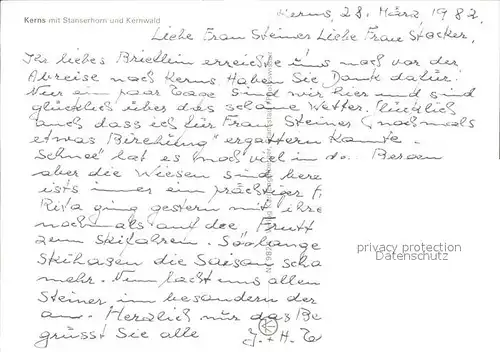 Kerns mit Stanserhorn und Kernwald
Kerns, 28. März 1982
Liebe Frau Steiner Liebe Frau Stocker,
Ihr liebes Brieflein erreichte uns noch vor der
Abreise nach Kerns. Haben Sie Dank dafür.
Nur ein paar Tage sind wir hier und sind
glücklich über das schöne Wetter. Glücklich
auch dass ich für Frau Steiner nochmals
etwas " ergattern konnte.
Schnee hat es noch viel in de Bergen
aber die Wiesen sind bere
ists immer ein prächtiger
Rita ging gestern mit ihre
nochmals auf die Frutt
zum Skifahren. Solange
die Saison scho
mehr. Nun lacht uns allen
Steiner im besondern der
an. Herzlich nur das Be
grüsst Sie alle J. + H.
privacy protection